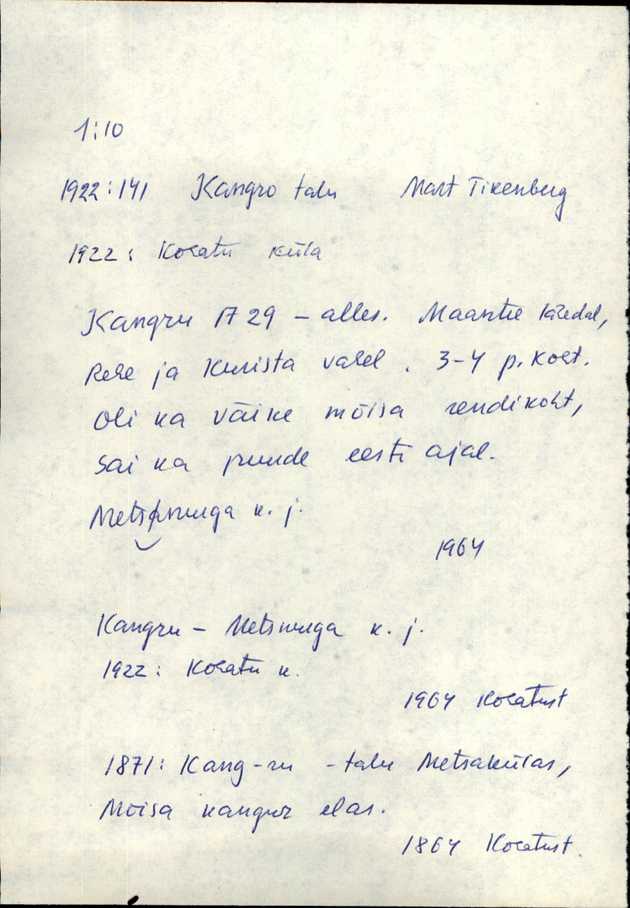 1:10
1922:141 Kangro talu Mart Tikenberg
1922: Kosatu küla
Kangru A 29 – alles. Maantee käredal,
Rehe ja Kurista vahel. 3-4 p. koht.
Oli ka väike mõisa rendikoht,
sai ka puude eesti ajal.
Metsanurga k. j.
1964
Kangru – Metsnurga k. j.
1922: Kosatu k.
1964 Kosatust
1871: Kang-ru -talu Metsakülas,
Mõisa kangur elas.
1864 Kosatust.